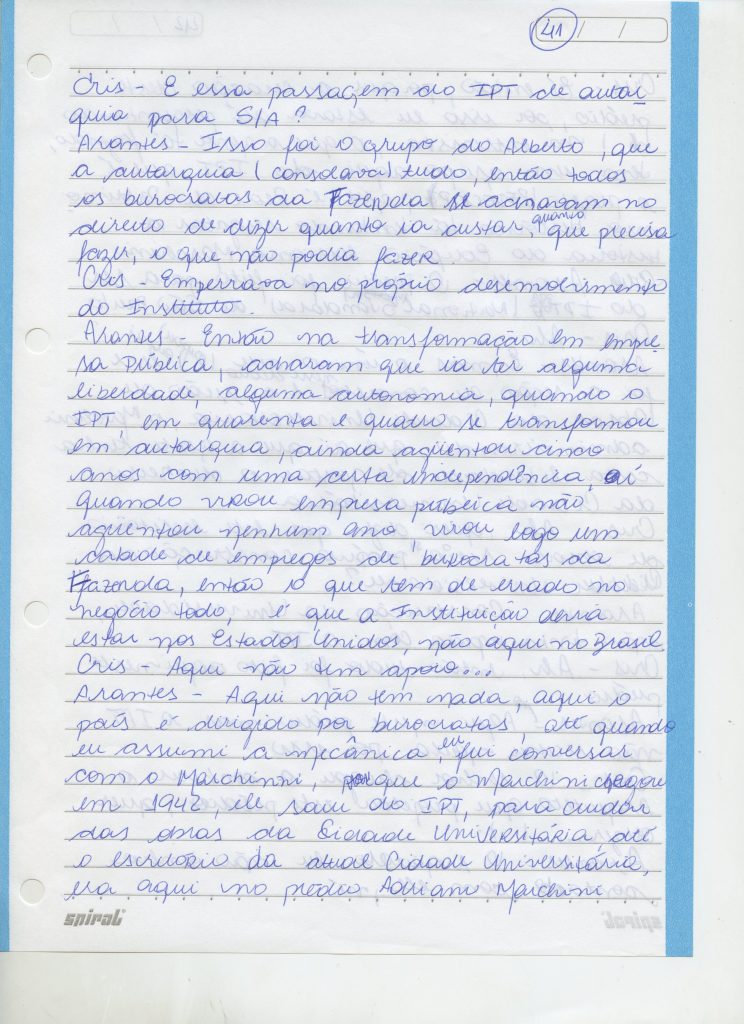 41 / /
Cris - E essa passagem do IPT de autar
quia para S/A?
Arantes - Isso foi o grupo do Alberto, que
a autarquia (consolava) tudo, então todos
os burocratas da Fazenda se achavam no
direito de dizer quanto ia custar, quanto que precisa
fazer, o que não podia fazer.
Cris - Emperrava no próprio desenvolvimento
do Instituto.
Arantes - Então na transformação em empre
sa Pública, acharam que ia ter alguma
liberdade, alguma autonomia, quando o
IPT em quarenta e quatro se transformou
em autarquia, ainda agüentou cinco
anos com uma certa independência, aí
quando virou empresa pública não
agüentou nenhum ano virou logo um
cabide de empregos de burocratas da
Fazenda, então o que tem de errado no
negócio todo, é que a Instituição devia
estar nos Estados Unidos, não aqui no Brasil.
Cris - Aqui não tem apoio...
Arantes - Aqui não tem nada, aqui o
país é dirigido por burocratas, até quando
eu assumi a mecânica, eu fui conversar
com o Marchinni, porque o Marchini
em 1942, ele saiu do IPT, para cuidar
das obras da Cidade Universitária até
o escritório da atual Cidade Universitária,
era aqui no prédio Adriano Marchini
spiral